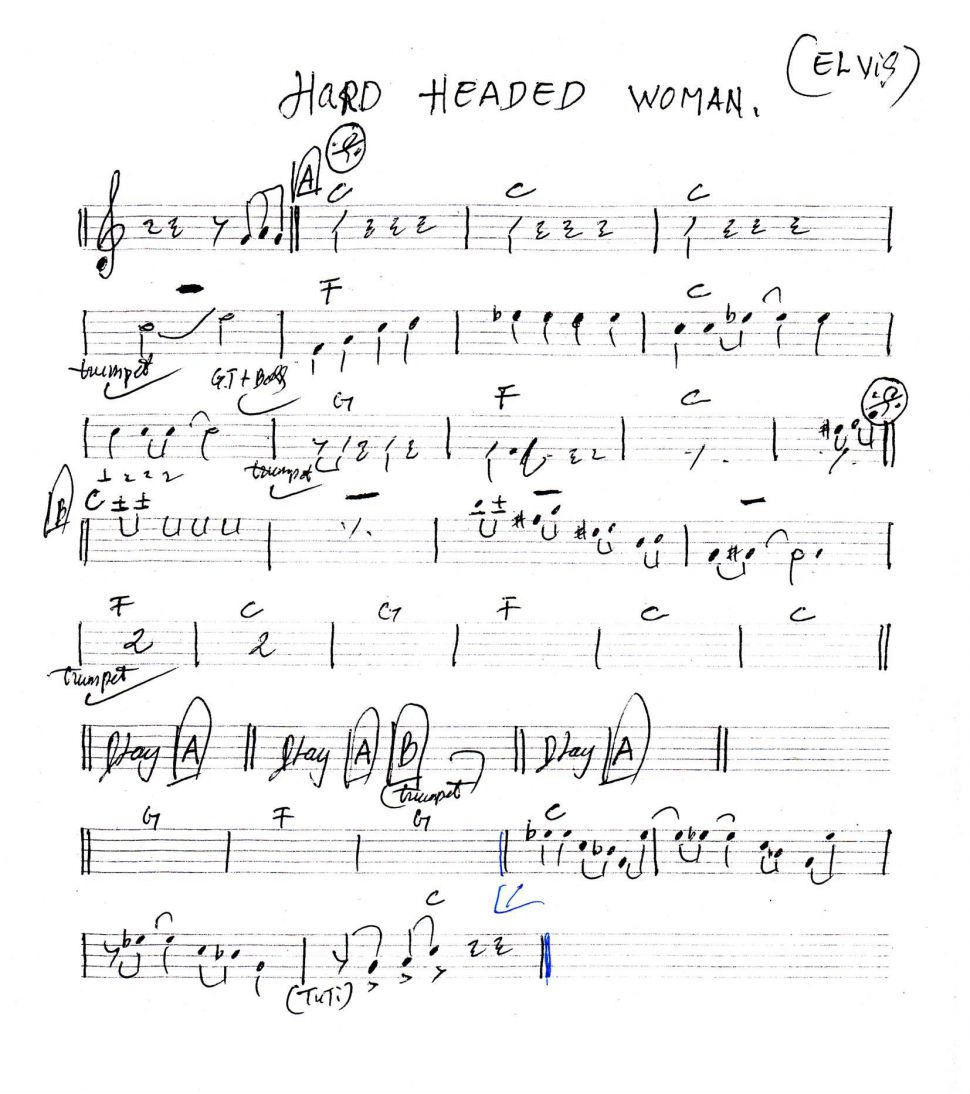 (ELViS)
HaRD HEADED WOMAN.
A C C C
F C
trumpet G.T + Bass
G F C
trumpet
1 2 2 2
B C
F C G F C C
2 2
trumpet
Play A Play A B Play A
(trumpet
G F G C
C
(TuTi)